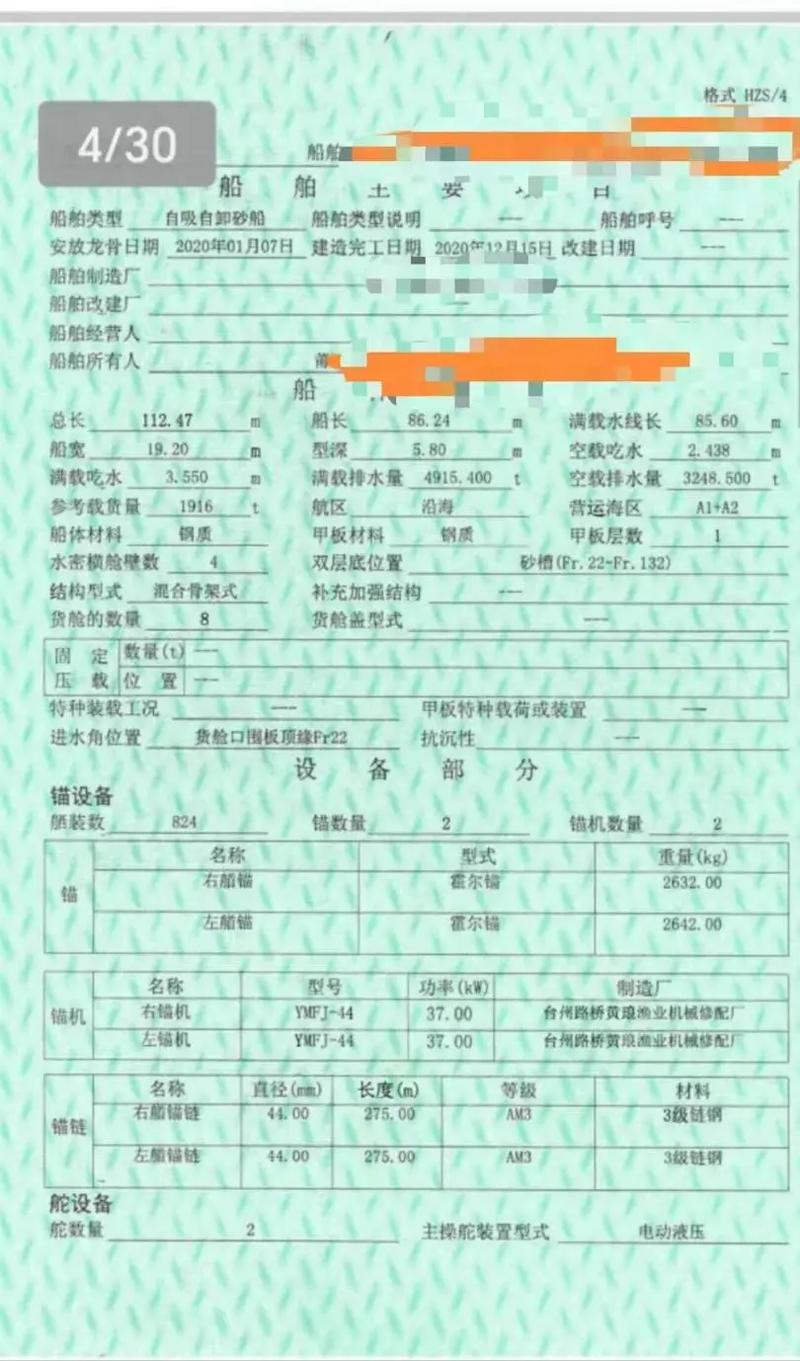 格式 HZS/4
4/30
船舶
船舶主要项目
船舶类型 自吸自卸砂船 船舶类型说明 --- 船舶呼号 ---
安放龙骨日期 2020年01月07日 建造完工日期 2020年12月15日 改建日期 ---
船舶制造厂
船舶改建厂 ---
船舶经营人
船舶所有人
船
总长 112.47 m 船长 86.24 m 满载水线长 85.60 m
船宽 19.20 m 型深 5.80 m 空载吃水 2.438 m
满载吃水 3.550 m 满载排水量 4915.400 t 空载排水量 3248.500 t
参考载货量 1916 t 航区 沿海 营运海区 A1+A2
船体材料 钢质 甲板材料 钢质 甲板层数 1
水密横舱壁数 4 双层底位置 砂槽(Fr.22-Fr.132)
结构型式 混合骨架式 补充加强结构 ---
货舱的数量 8 货舱盖型式 ---
固定 数量(t) ---
压载 位置 ---
特种装载工况 --- 甲板特种载荷或装置 ---
进水角位置 货舱口围板顶缘Fr22 抗沉性 ---
设备部分
锚设备
舾装数 824 锚数量 2 锚机数量 2
名称 型式 重量(kg)
锚
右艏锚 霍尔锚 2632.00
左艏锚 霍尔锚 2642.00
名称 型号 功率(kW) 制造厂
锚机
右锚机 YMFJ-44 37.00 台州路桥黄琅渔业机械修配厂
左锚机 YMFJ-44 37.00 台州路桥黄琅渔业机械修配厂
名称 直径(mm) 长度(m) 等级 材料
锚链
右艏锚链 44.00 275.00 AM3 3级链钢
左艏锚链 44.00 275.00 AM3 3级链钢
舵设备
舵数量 2 主操舵装置型式 电动液压